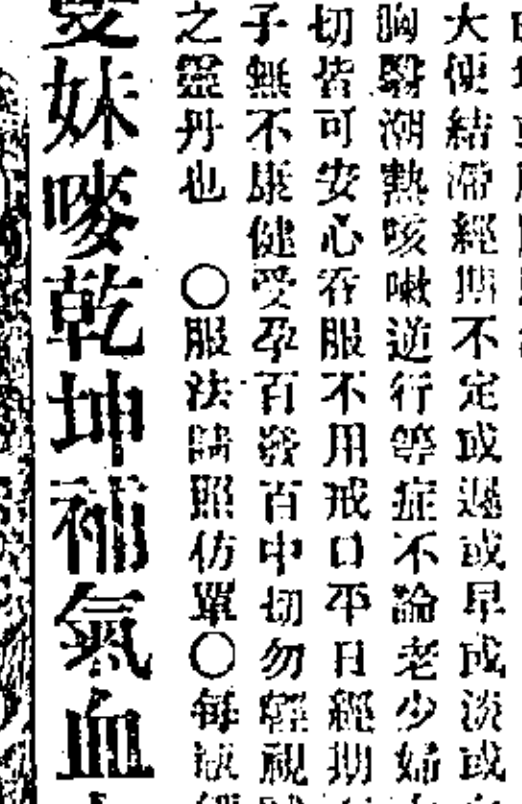 大便結滯經期不定或遲或早或淡或
胸翳潮熱咳嗽逆行等症不論老少婦
切皆可安心吞服不用戒口平日經期
子無不康健受孕百發百中切勿輕視
之靈丹也 〇服法請照仿單〇每
妹嘜乾坤補氣血